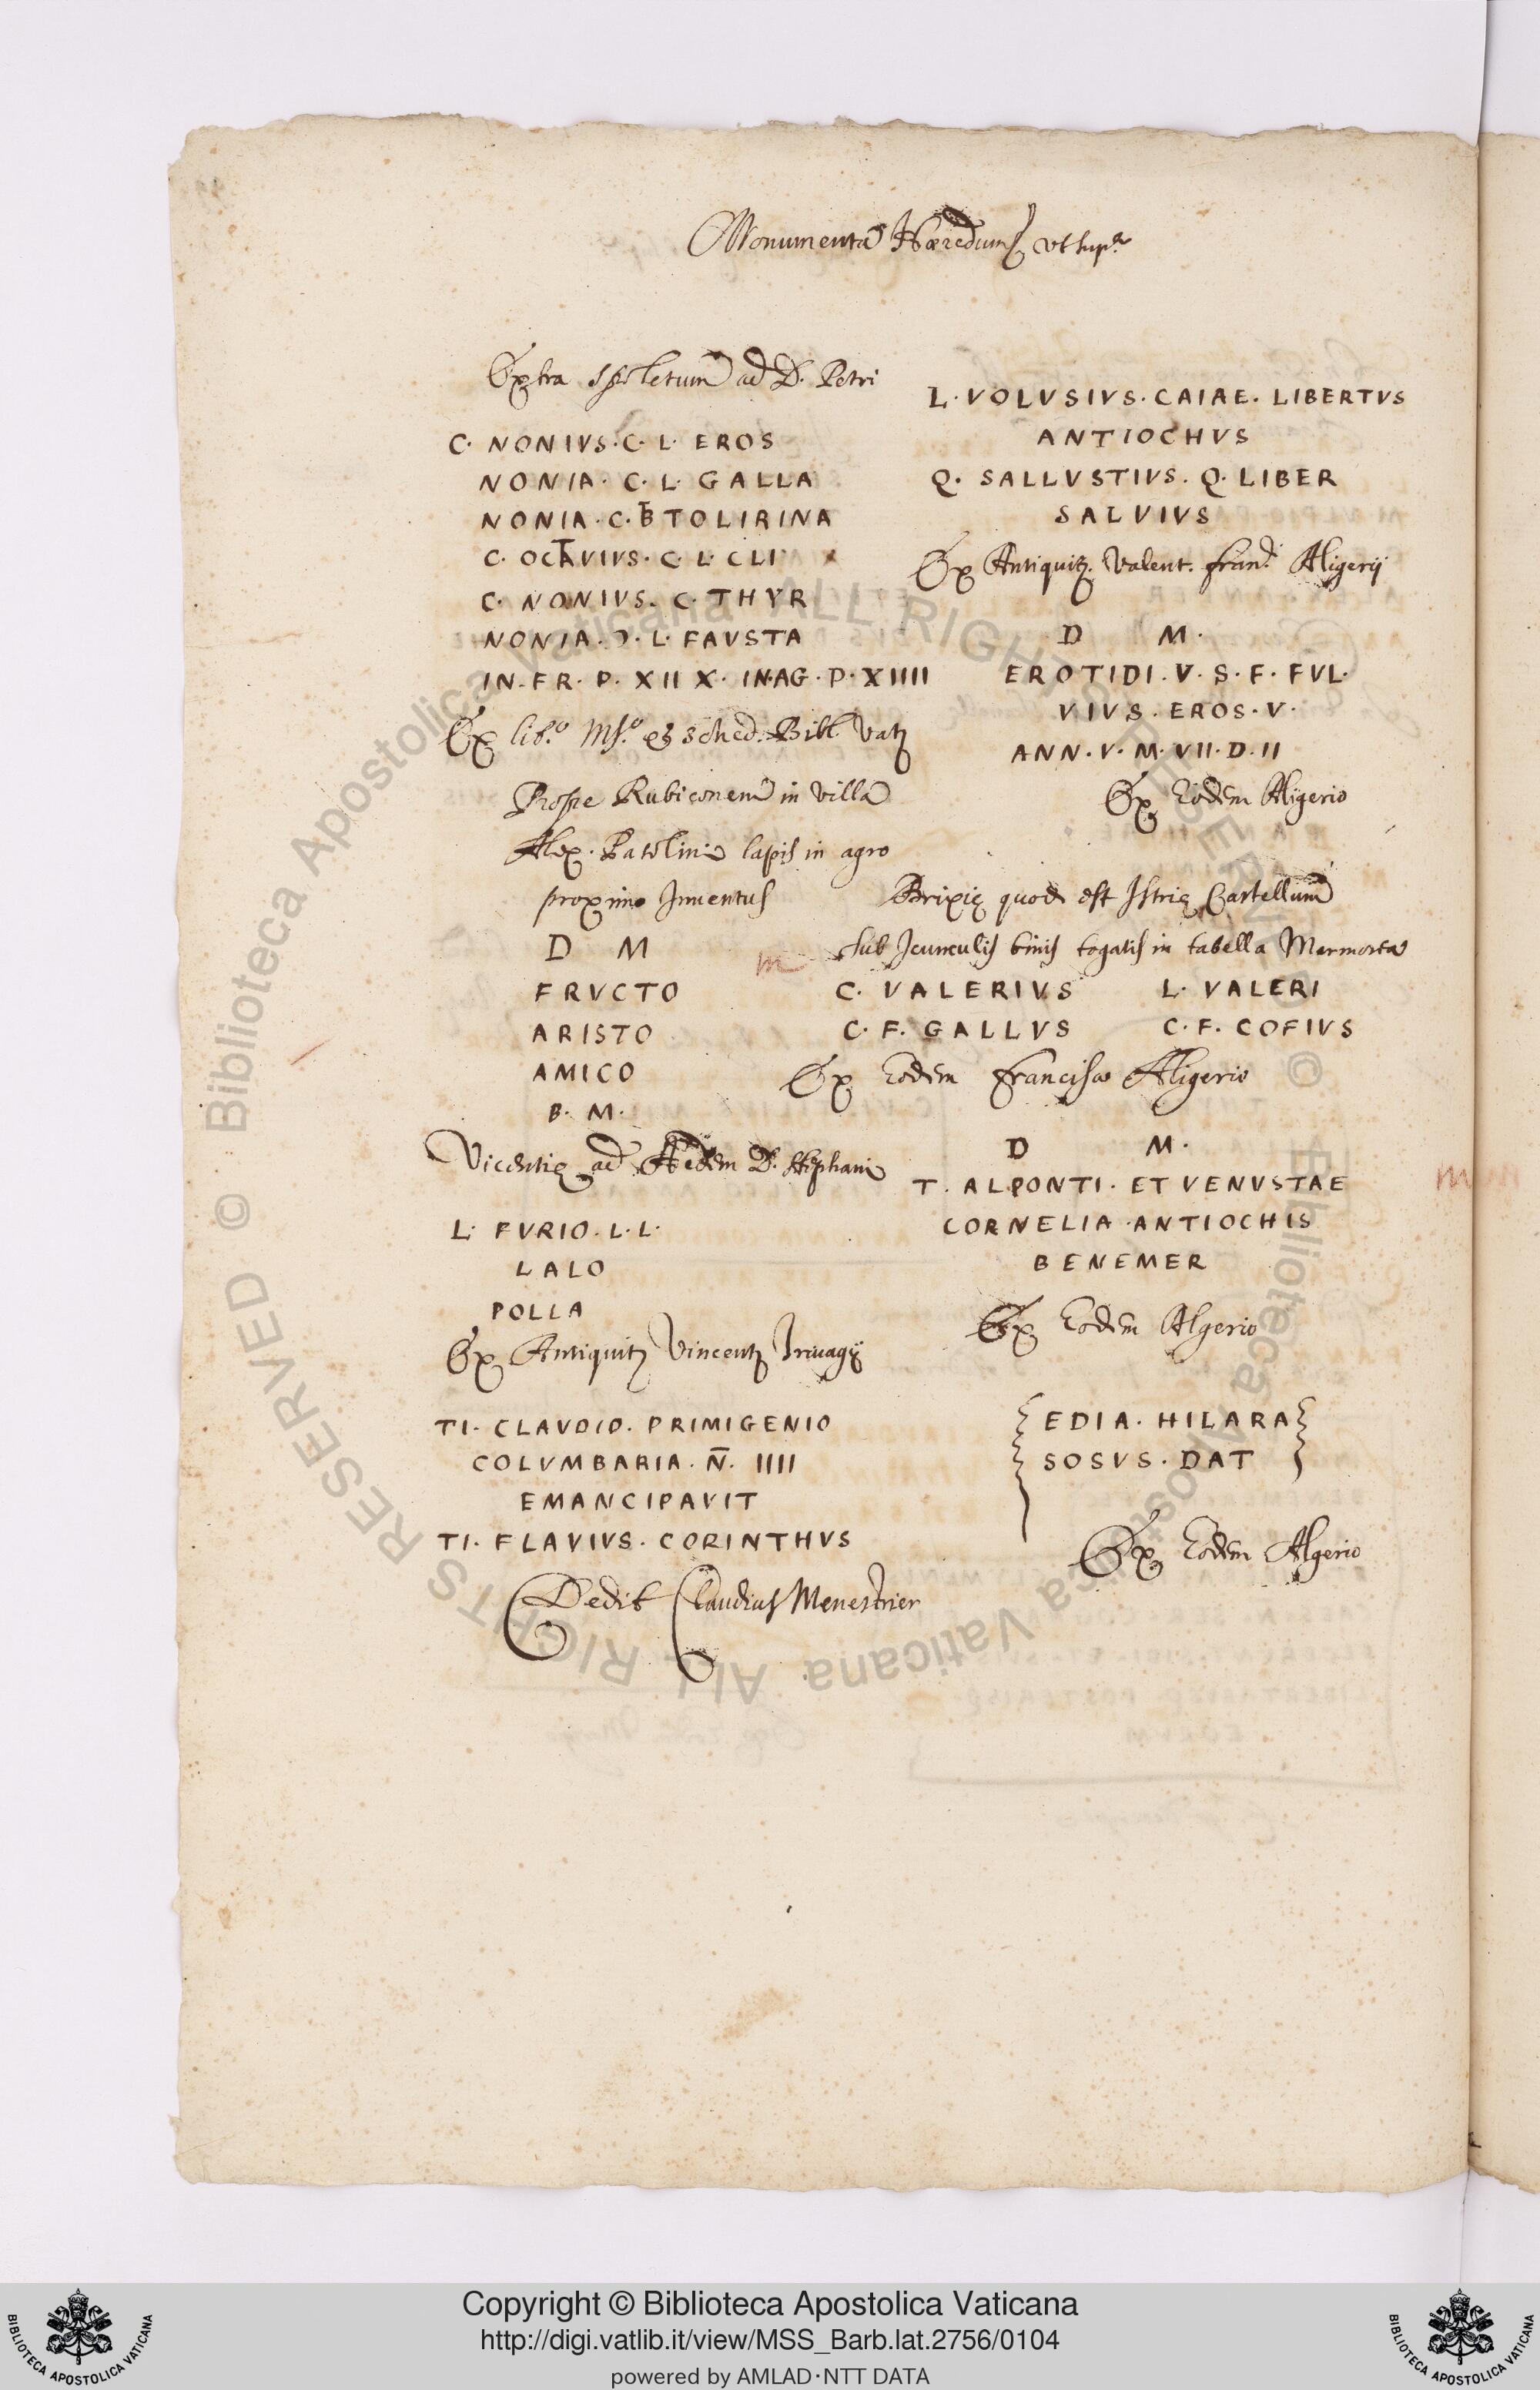 Monumenta Hæredum ut sup.ᵃ
Extra Spoletum ad D. Petri
C. NONIVS. C. L. EROS
NONIA. C. L. GALLA
NONIA. C. TOLIRINA
C. OCTAVIVS. C. L. CLI
C. NONIVS. C. THYR
NONIA. Ↄ. L. FAVSTA
IN. FR. P. XII X. IN. AG. P. XIIII
Ex lib.º Ms.º et sched. Bibl. Vat.
Prope Rubiconem in villa
Alex. lapis in agro
proximo Inventus
D M
FRVCTO
ARISTO
AMICO
B. M.
Vicentię ad Aedem D. Stephani
L. FVRIO. L. L.
LALO
POLLA
Ex Antiquit. Vincent.
TI. CLAVDIO. PRIMIGENIO
COLVMBARIA. N̄. IIII
EMANCIPAVIT
TI. FLAVIVS. CORINTHVS
Dedit Claudius Menestrier
L. VOLVSIVS. CAIAE. LIBERTVS
ANTIOCHVS
Q. SALLVSTIVS. Q. LIBER
SALVIVS
Ex Antiquit. Valent. Fran. Aligerij
D M.
EROTIDI. V. S. F. FVL.
VIVS. EROS. V.
ANN. V. M. VII. D. II
Ex Eodem Aligerio
Brixię quod est Istrię Castellum
sub Icunculis binis togatis in tabella Marmorea
m
C. VALERIVS L. VALERI
C. F. GALLVS C. F. COFIVS
Ex Eodem Francisco Aligerio
D M.
T. ALPONTI. ET VENVSTAE
m
CORNELIA. ANTIOCHIS
BENEMER
Ex Eodem Algerio
EDIA. HILARA
SOSVS. DAT
Ex Eodem Algerio
Biblioteca Apostolica Vaticana ALL RIGHTS RESERVED © Biblioteca Apostolica Vaticana ALL RIGHTS RESERVED ©
Copyright © Biblioteca Apostolica Vaticana
http://digi.vatlib.it/view/MSS_Barb.lat.2756/0104
powered by AMLAD·NTT DATA
BIBLIOTECA APOSTOLICA VATICANA
BIBLIOTECA APOSTOLICA VATICANA